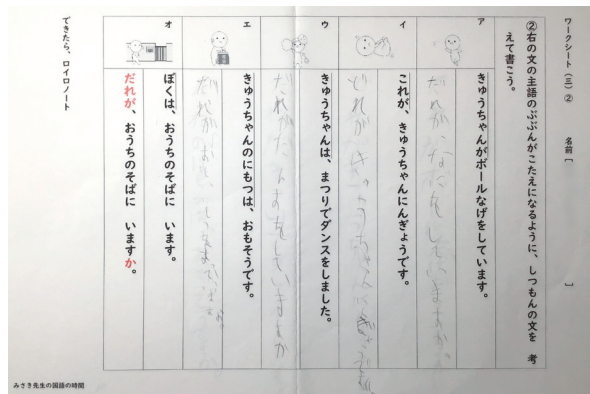 ワークシート(三)②　名前[　]
②右の文の主語のぶぶんがこたえになるように、しつもんの文を　考
えて書こう。
ア
きゅうちゃんがボールなげをしています。
だれが、なにをしていますか。
イ
これが、きゅうちゃんにんぎょうです。
どれが
ウ
きゅうちゃんは、まつりでダンスをしました。
だれがだんすをしていますか
エ
きゅうちゃんのにもつは、おもそうです。
だれが
オ
ぼくは、おうちのそばに　います。
だれが、おうちのそばに　いますか。
できたら、ロイロノート
みさき先生の国語の時間